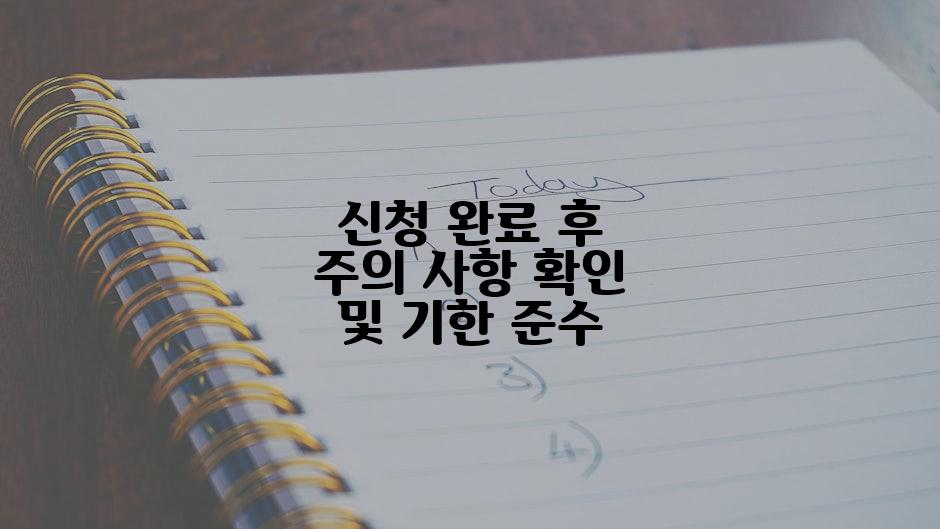 Today
신청 완료 후
주의 사항 확인
및 기한 준수
3)
4)